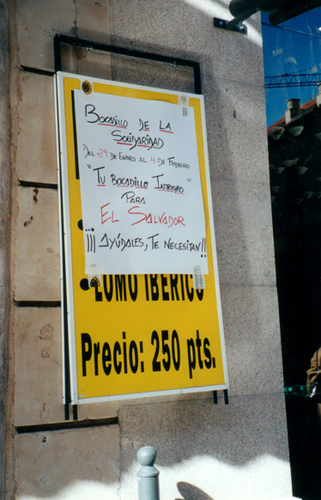 BOCADILLO DE LA
SOLIDARIDAD
DEL 29 DE ENERO AL 4 DE FEBRERO
"TU BOCADILLO INTEGRO"
PARA
EL SALVADOR
¡¡¡AYÚDALES, TE NECESITAN!!
LOMO IBERICO
Precio: 250 pts.